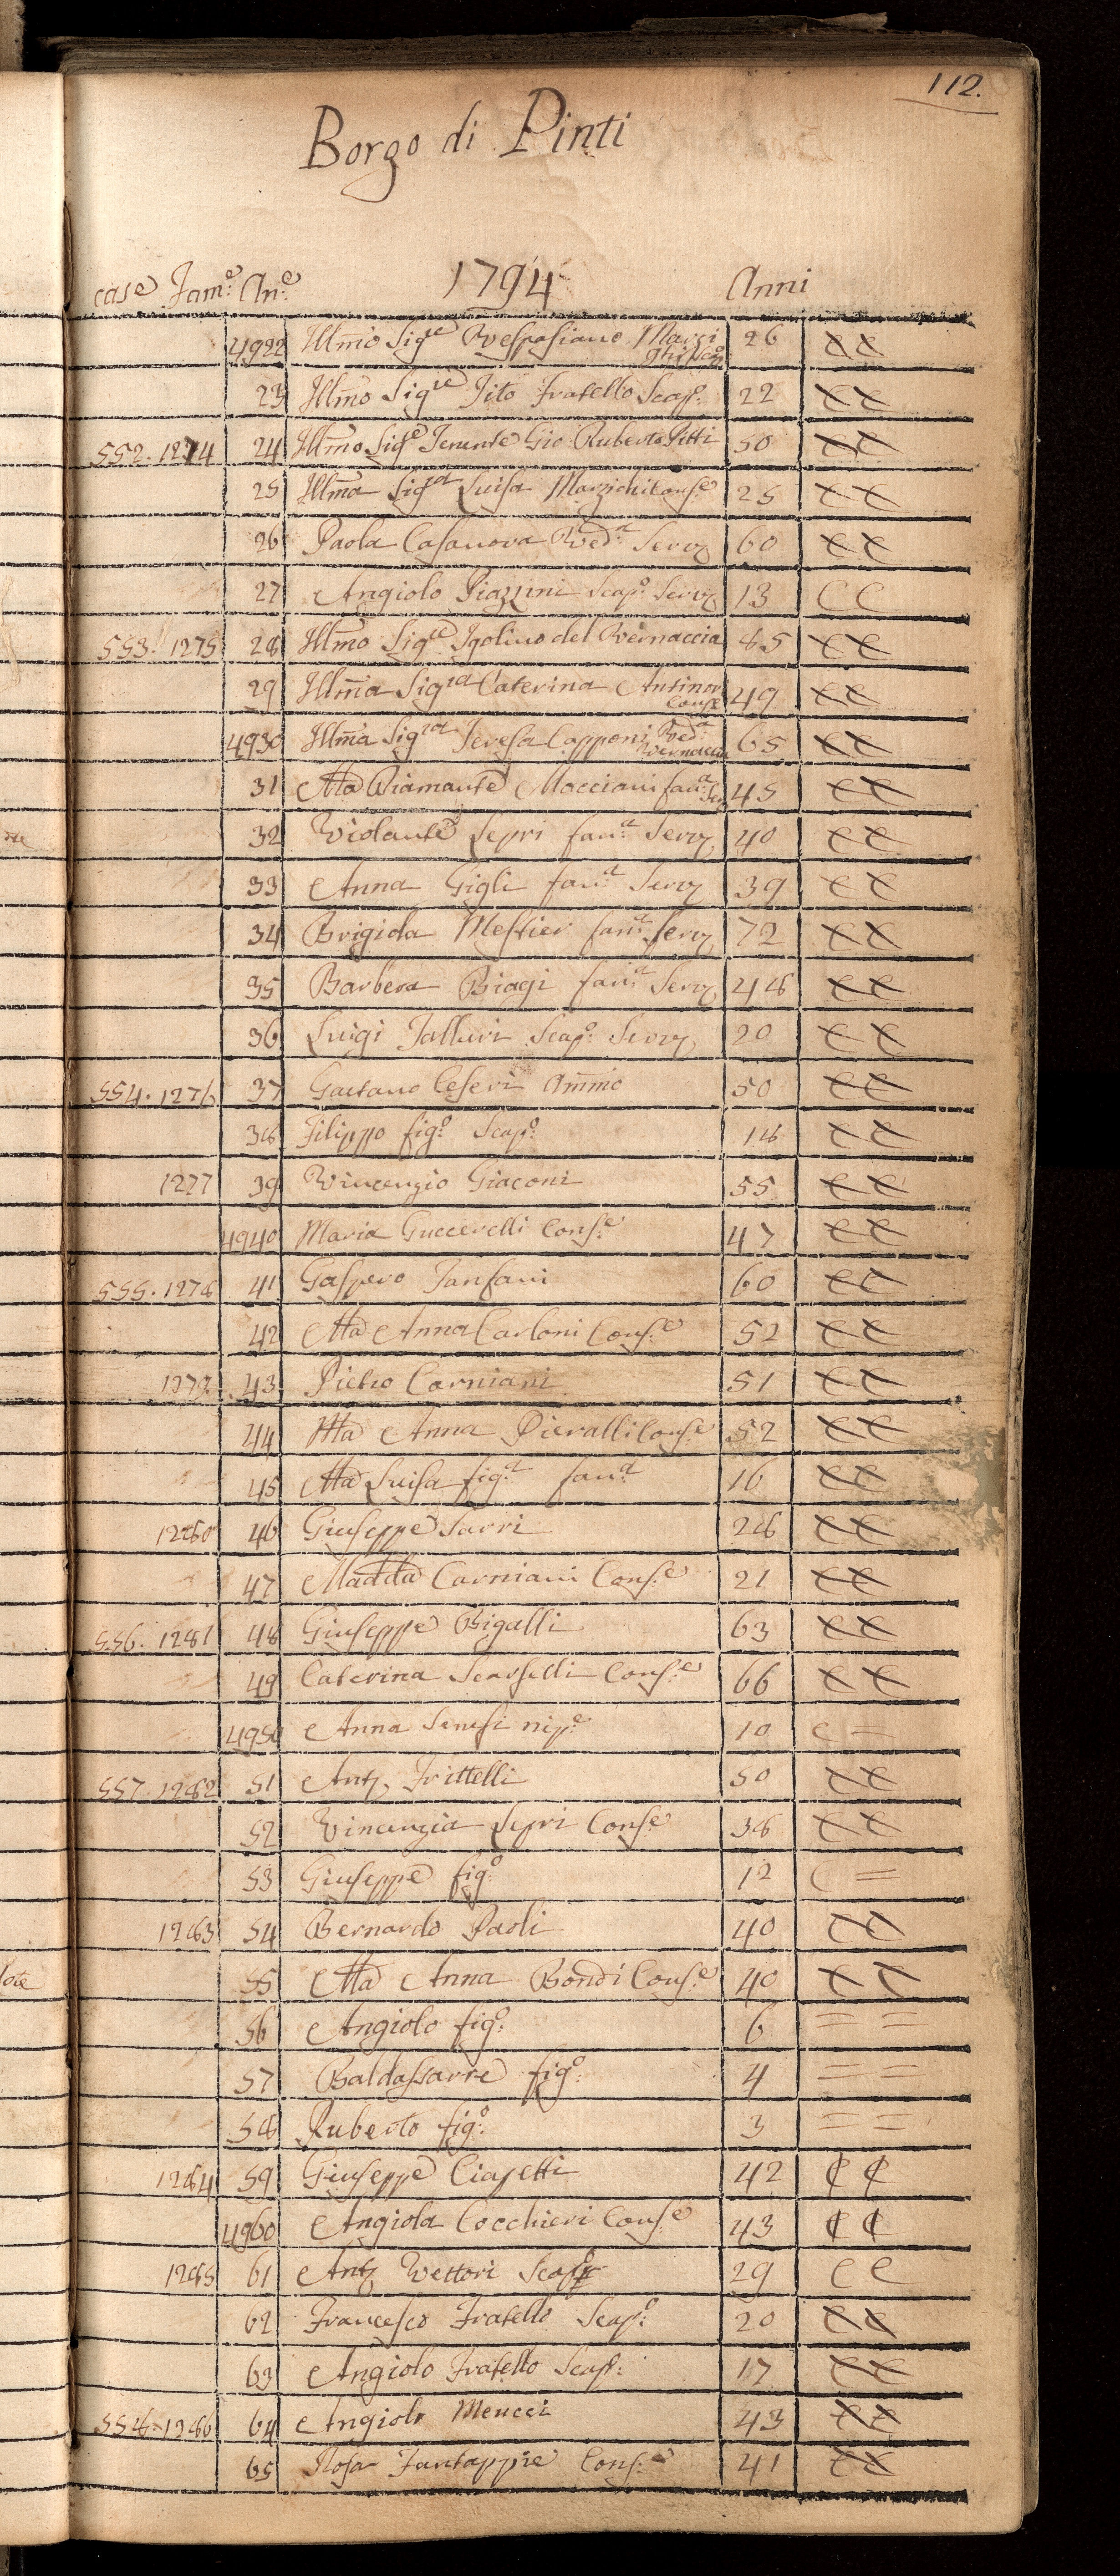 112.
Borgo di Pinti
case Fam.e An.e 1794 Anni
4922 Illmo Sig.re Vespasiano Marzi 26 CC
23 Illmo Sig.re Tito Fratello Scap.o 22 CC
552. 1274 24 Illmo Sig.e Tenente Gio: Ruberto Pitti 50 CC
25 Illma Sig.ra Luisa Marzichi Cons.e 25 CC
26 Paola Casanova Ved.a Serv 60 CC
27 Angiolo Piazzini Scap.o Serv 13 CC
553. 1275 28 Illmo Sig.re Igolino del Vernaccia 85 CC
29 Illma Sig.ra Caterina Antinori Cons.e 49 CC
4930 Illma Sig.ra Teresa Capponi Ved.a Vernaccia 65 CC
31 Ma Diamante Mocciani fan.a Ser 45 CC
32 Violante Lepri fan.a Serv 40 CC
33 Anna Gigli fan.a Serv 39 CC
34 Brigiola Mestier fan.a Serv 72 CC
35 Barbera Biagi fan.a Serv 48 CC
36 Luigi Talluri Scap.o Serv 20 CC
554. 1276 37 Gaetano Ceseri Ammo 50 CC
38 Filippo fig.o Scap.o 18 CC
1277 39 Vincenzio Giaconi 55 CC
4940 Maria Guccerelli Cons.e 47 CC
555. 1278 41 Gaspero Fanfani 60 CC
42 Ma Anna Carloni Cons.e 52 CC
1279. 43 Pietro Carniani 51 CC
44 Ma Anna Pieralli Cons.e 52 CC
45 Ma Luisa fig.a fan.a 16 CC
1280 46 Giuseppe Sarri 28 CC
47 Madda Carniani Cons.e 21 CC
556. 1281 48 Giuseppe Bigalli 63 CC
49 Caterina Scarselli Cons.e 66 CC
4950 Anna Senesi nip.e 10 C =
557. 1282 51 Ant. Frittelli 50 CC
52 Vincenzia Lepri Cons.e 38 CC
53 Giuseppe fig.o 12 C =
1283 54 Bernardo Paoli 40 CC
55 Ma Anna Bondi Cons.e 40 CC
56 Angiolo fig.o 6 = =
57 Baldassarre fig.o 4 = =
58 Ruberto fig.o 3 = =
1284 59 Giuseppe Ciapetti 42 CC
4960 Angiola Cocchieri Cons.e 43 CC
1285 61 Ant. Vettori Scap.o 29 CC
62 Francesco Fratello Scap.o 20 CC
63 Angiolo Fratello Scap.o 17 CC
558. 1286 64 Angiolo Meucci 43 CC
65 Rosa Fantappie Cons.e 41 CC